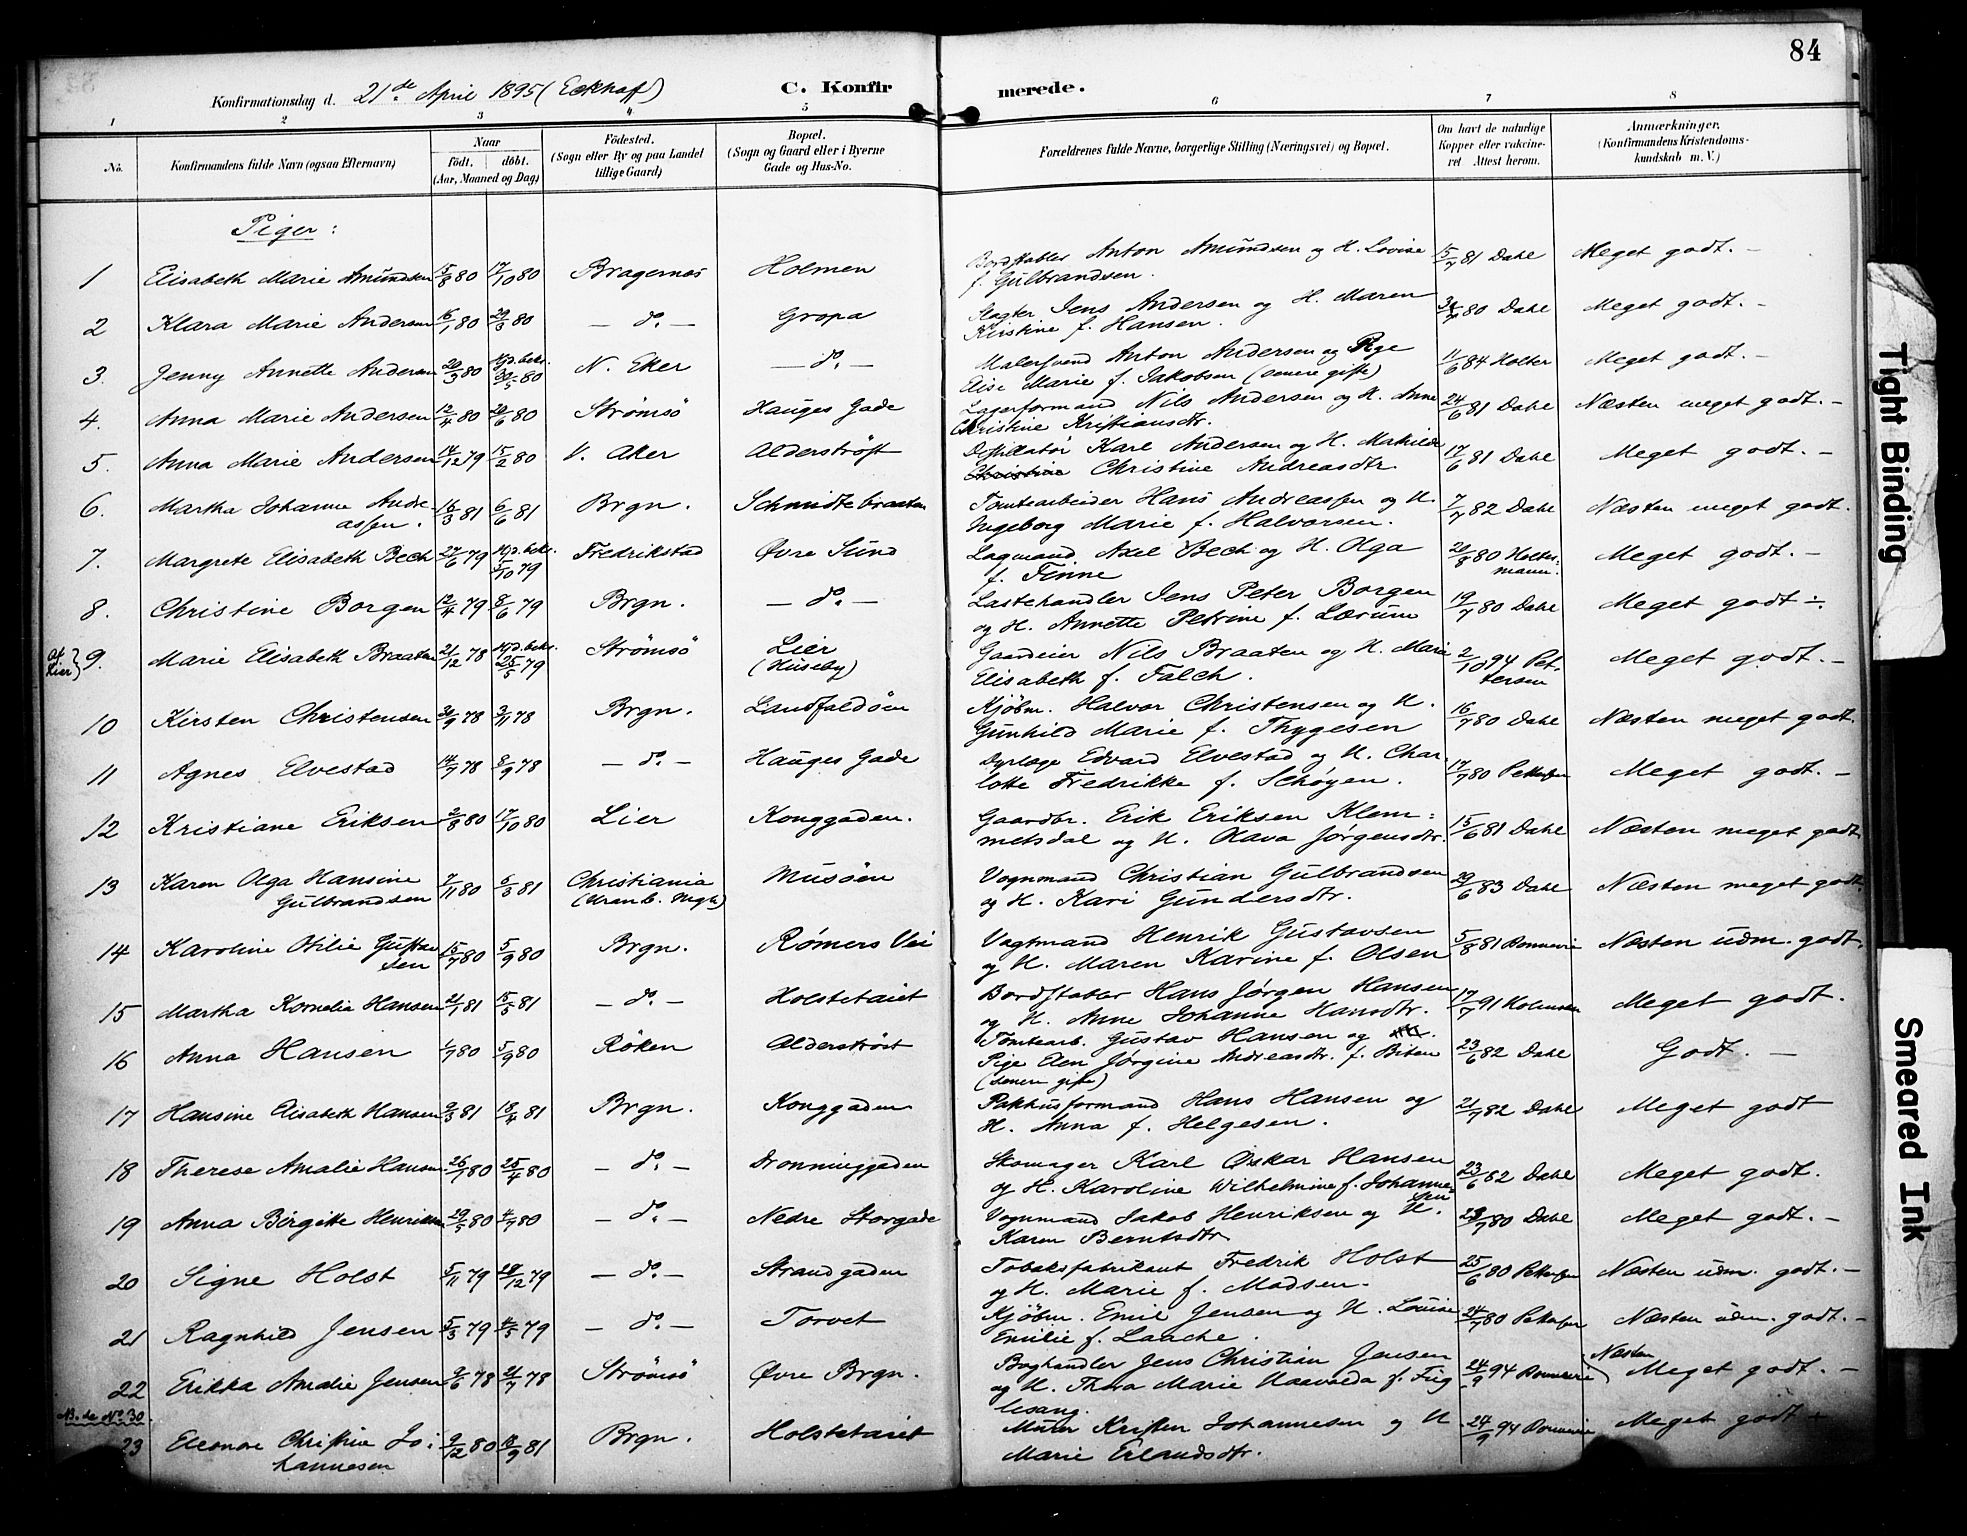 84
Konfirmationsdag d. 21de April 1895 (Eckhoff) C. Konfirmerede.
1 2 3 4 5 6 7 8
No. Konfirmandens fulde Navn (ogsaa Efternavn) Naar født. døbt. (Aar, Maaned og Dag) Fødested. (Sogn eller By og paa Landet tillige Gaard) Bopæl. (Sogn og Gaard eller i Byerne Gade og Hus-No. Forældrenes fulde Navne, borgerlige Stilling (Næringsvei) og Bopæl. Om havt de naturlige Kopper eller vaccineret Attest herom. Anmærkninger. (Konfirmandens Kristendomskundskab m. V.)
Piger:
1 Elisabeth Marie Amundsen 15/8 80 17/10 80 Bragernæs Holmen Bordstabler Anton Amundsen og H. Lovise f. Gulbrandsen. 15/7 81 Dahl Meget godt. –
2 Klara Marie Andersen 16/1 80 29/3 80 – do. – Gropa Slagter Jens Andersen og H. Maren Kirstine f. Hansen. 80 Dahl Meget godt. –
3. Jenny Annette Andersen 20/3 80 Hjd. bekr. 30/5 80 N. Eker – do. – Malersvend Anton Andersen og Pige Elise Marie f. Jakobsen (senere gifte) 11/6 84 Holter Meget godt. –
4. Anna Marie Andersen 12/4 80 20/6 80 Strømsö Hauges Gade Lagerformand Nils Andersen og H. Anne Christine Kristiansdtr. 24/6 81 Dahl Næsten meget godt. –
5. Anna Marie Andersen 14/12 79 15/2 80 V. Aker Alderströst Destillatør Karl Andersen og H. Mathilde Christine Christine Andreasdtr. 17/6 81 Dahl Meget godt. –
6. Martha Johanne Andreassen. 16/3 81 6/6 81 Brgn. Schmidtebraaten Tomtearbeider Hans Andreassen og H. Ingeborg Marie f. Halvorsen. 7/7 82 Dahl Næsten meget godt.
7. Margrete Elisabeth Bech 27/6 79 Hjd. bekr. 5/10 79 Fredrikstad Øvre Sund Lagmand Axel Bech og H. Olga f. Finne 20/8 80 Holtermann. Meget godt. –
8. Christine Borgen 12/4 79 8/6 79 Brgn. – do. – Lastehandler Jens Peter Borgen og H. Annette Petrine f. Lærum 19/7 80 Dahl Meget godt ÷.
af Lier} 9. Marie Elisabeth Braaten 21/12 78 Hjd. bekr. 25/5 79 Strömsö Lier (Huseby) Gaardeier Nils Braaten og H. Marie Elisabeth f. Falch. 2/10 94 Pettersen Meget godt. –
10 Kirsten Christensen 30/9 78 3/11 78 Brgn. Landfaldöen Kjöbm. Halvor Christensen og H. Gunhild Marie f. Thygesen 16/7 80 Dahl Næsten meget godt.
11 Agnes Elvestad 14/7 78 8/9 78 – do. – Hauges Gade Dyrlæge Edvard Elvestad og H. Charlotte Fredrikke f. Schøyen. 17/7 80 Pettersen Meget godt. –
12 Kristiane Eriksen 2/8 80 17/10 80 Lier Konggaden. Gaardbr. Erik Eriksen Klemmetsdal og H. Olava Jørgensdtr. 15/6 81 Dahl Næsten meget godt.
13 Karen Olga Hansine Gulbrandsen 7/11 80 6/3 81 Christiania Musöen Vognmand Christian Gulbrandsen og H. Kari Gundersdtr. 29/6 83 Dahl Næsten meget godt.
14 Karoline Otilie Gustavsen 15/7 80 5/9 80 Brgn. Rømers Vei Vagtmand Henrik Gustavsen og H. Maren Karine f. Olsen 5/8 81 Næsten udm. godt.
15 Martha Kornelia Hansen 21/1 81 15/5 81 – do. – Holstetaiet Bordstabler Hans Jørgen Hansen og H. Anne Johanne Hansdtr. 17/7 91 Meget godt.
16 Anna Hansen 1/7 80 5/9 80 Röken Alderströst Tomtearb. Gustav Hansen og Pige Elen Jørgine Andreasdtr. f. Biten (senere gifte) 23/6 82 Dahl Godt. –
17 Hansine Elisabeth Hansen 9/3 81 18/4 81 Brgn. Konggaden Pakhusformand Hans Hansen og H. Anna f. Helgesen. 21/7 82 Dahl Meget godt
18 Therese Amalie Hansen 26/1 80 25/4 80 – do. – Dronninggaden Skomager Karl Oskar Hansen og H. Karoline Wilhelmine f. Johannesen 23/6 82 Dahl Meget godt.
19 Anna Birgitte Henriksen 29/5 80 4/7 80 – do. – Nedre Storgade Vognmand Jakob Henriksen og H. Karen Berntsdtr. 80 Dahl Meget godt. –
20 Signe Holst 5/11 79 28/12 79 – do. – Strandgaden Tobaksfabrikant Fredrik Holst og H. Marie f. Madsen. 25/6 80 Pettersen Næsten udm. godt. –
21 Ragnhild Jensen 5/3 79 4/5 79 – do. – Torvet Kjöbm. Emil Jensen og H. Louise Emilie f. Laache. 24/7 80 Pettersen Næsten udm. godt. –
22 Erikka Amalie Jensen 9/6 78 21/7 78 Strömsö Øvre Brgn. Boghandler Jens Christian Jensen og H. Thora Marie f. Fuglesang. 24/9 94 (Næsten) Meget godt. –
No. 30.
23 Eleonore Christine Johannesen 9/12 80 18/9 81 Brgn. Holstetaiet Murer Kristen Johannesen og H Marie Erlandsdtr. 24/9 94 Meget godt +
Tight Binding
Smeared Ink